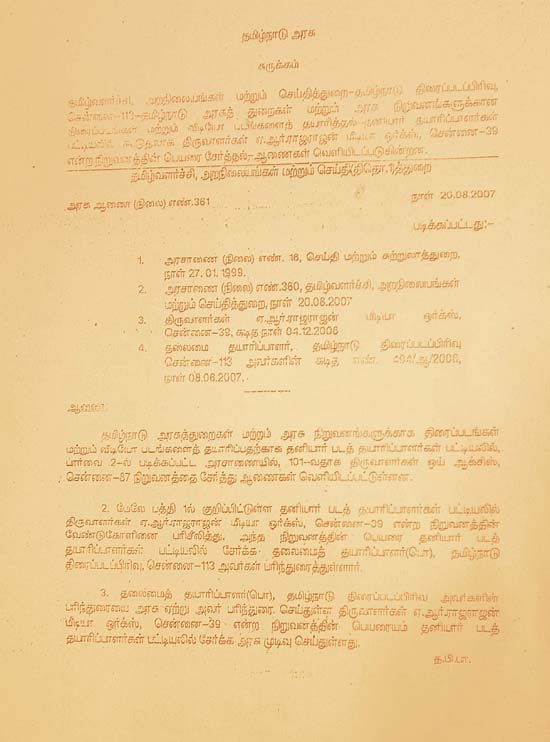 தமிழ்நாடு அரசு
சுருக்கம்
தமிழ்வளர்ச்சி, அறநிலையங்கள் மற்றும் செய்தித்துறை-தமிழ்நாடு திரைப்படப்பிரிவு,
சென்னை-113-தமிழ்நாடு அரசுத் துறைகள் மற்றும் அரசு நிறுவனங்களுக்கான
திரைப்படங்கள் மற்றும் வீடியோ படங்களைத் தயாரித்தல்-தனியார் தயாரிப்பாளர்கள்
பட்டியலில் கூடுதலாக திருவாளர்கள் ஏ.ஆர்.ராஜராஜன் மீடியா ஒர்க்ஸ், சென்னை-39
என்ற நிறுவனத்தின் பெயரை சேர்த்தல்,-ஆணைகள் வெளியிடப்படுகின்றன.
தமிழ்வளர்ச்சி, அறநிலையங்கள் மற்றும் செய்தி(திதொ.1)த்துறை
அரசு ஆணை (நிலை) எண்.361 நாள் 20.08.2007
படிக்கப்பட்டது:-
1. அரசாணை (நிலை) எண். 16, செய்தி மற்றும் சுற்றுலாத்துறை,
நாள் 27.01.1999.
2. அரசாணை (நிலை) எண்.360, தமிழ்வளர்ச்சி, அறநிலையங்கள்
மற்றும் செய்தித்துறை, நாள் 20.08.2007
3. திருவாளர்கள் ஏ.ஆர்.ராஜராஜன் மீடியா ஒர்க்ஸ்,
சென்னை-39, கடித நாள் 04.12.2006
4. தலைமை தயாரிப்பாளர், தமிழ்நாடு திரைப்படப்பிரிவு
சென்னை-113 அவர்களின் கடித எண். 494/ஆ/2006,
நாள் 08.06.2007.
ஆணை:
தமிழ்நாடு அரசுத்துறைகள் மற்றும் அரசு நிறுவனங்களுக்காக திரைப்படங்கள்
மற்றும் வீடியோ படங்களைத் தயாரிப்பதற்காக தனியார் படத் தயாரிப்பாளர்கள் பட்டியலில்,
பார்வை 2-ல் படிக்கப்பட்ட அரசாணையில், 101-வதாக திருவாளர்கள் ஒய் ஆக்சிஸ்,
சென்னை-87 நிறுவனத்தை சேர்த்து ஆணைகள் வெளியிடப்பட்டுள்ளன.
2. மேலே பத்தி 1ல் குறிப்பிட்டுள்ள தனியார் படத் தயாரிப்பாளர்கள் பட்டியலில்
திருவாளர்கள் ஏ.ஆர்.ராஜராஜன் மீடியா ஒர்க்ஸ், சென்னை-39 என்ற நிறுவனத்தின்
வேண்டுகோளினை பரிசீலித்து, அந்த நிறுவனத்தின் பெயரை தனியார் படத்
தயாரிப்பாளர்கள் பட்டியலில் சேர்க்க தலைமைத் தயாரிப்பாளர்(பொ), தமிழ்நாடு
திரைப்படப்பிரிவு, சென்னை-113 அவர்கள் பரிந்துரைத்துள்ளார்.
3. தலைமைத் தயாரிப்பாளர்(பொ), தமிழ்நாடு திரைப்படப்பிரிவு அவர்களின்
பரிந்துரையை அரசு ஏற்று அவர் பரிந்துரை செய்துள்ள திருவாளர்கள் ஏ.ஆர்.ராஜராஜன்
மீடியா ஒர்க்ஸ், சென்னை-39 என்ற நிறுவனத்தின் பெயரையும் தனியார் படத்
தயாரிப்பாளர்கள் பட்டியலில் சேர்க்க அரசு முடிவு செய்துள்ளது.
த.பி.பா.